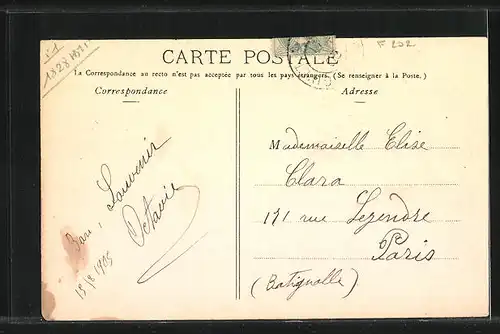 1828187
F 202
CARTE POSTALE
La Correspondance au recto n'est pas acceptée par tous les pays étrangers. (Se renseigner à la Poste.)
Correspondance
Adresse
Souvenir
Octavie
15/8 1905
Mademoiselle Elise
Clara
171 rue Legendre
Paris
(Batignolle)